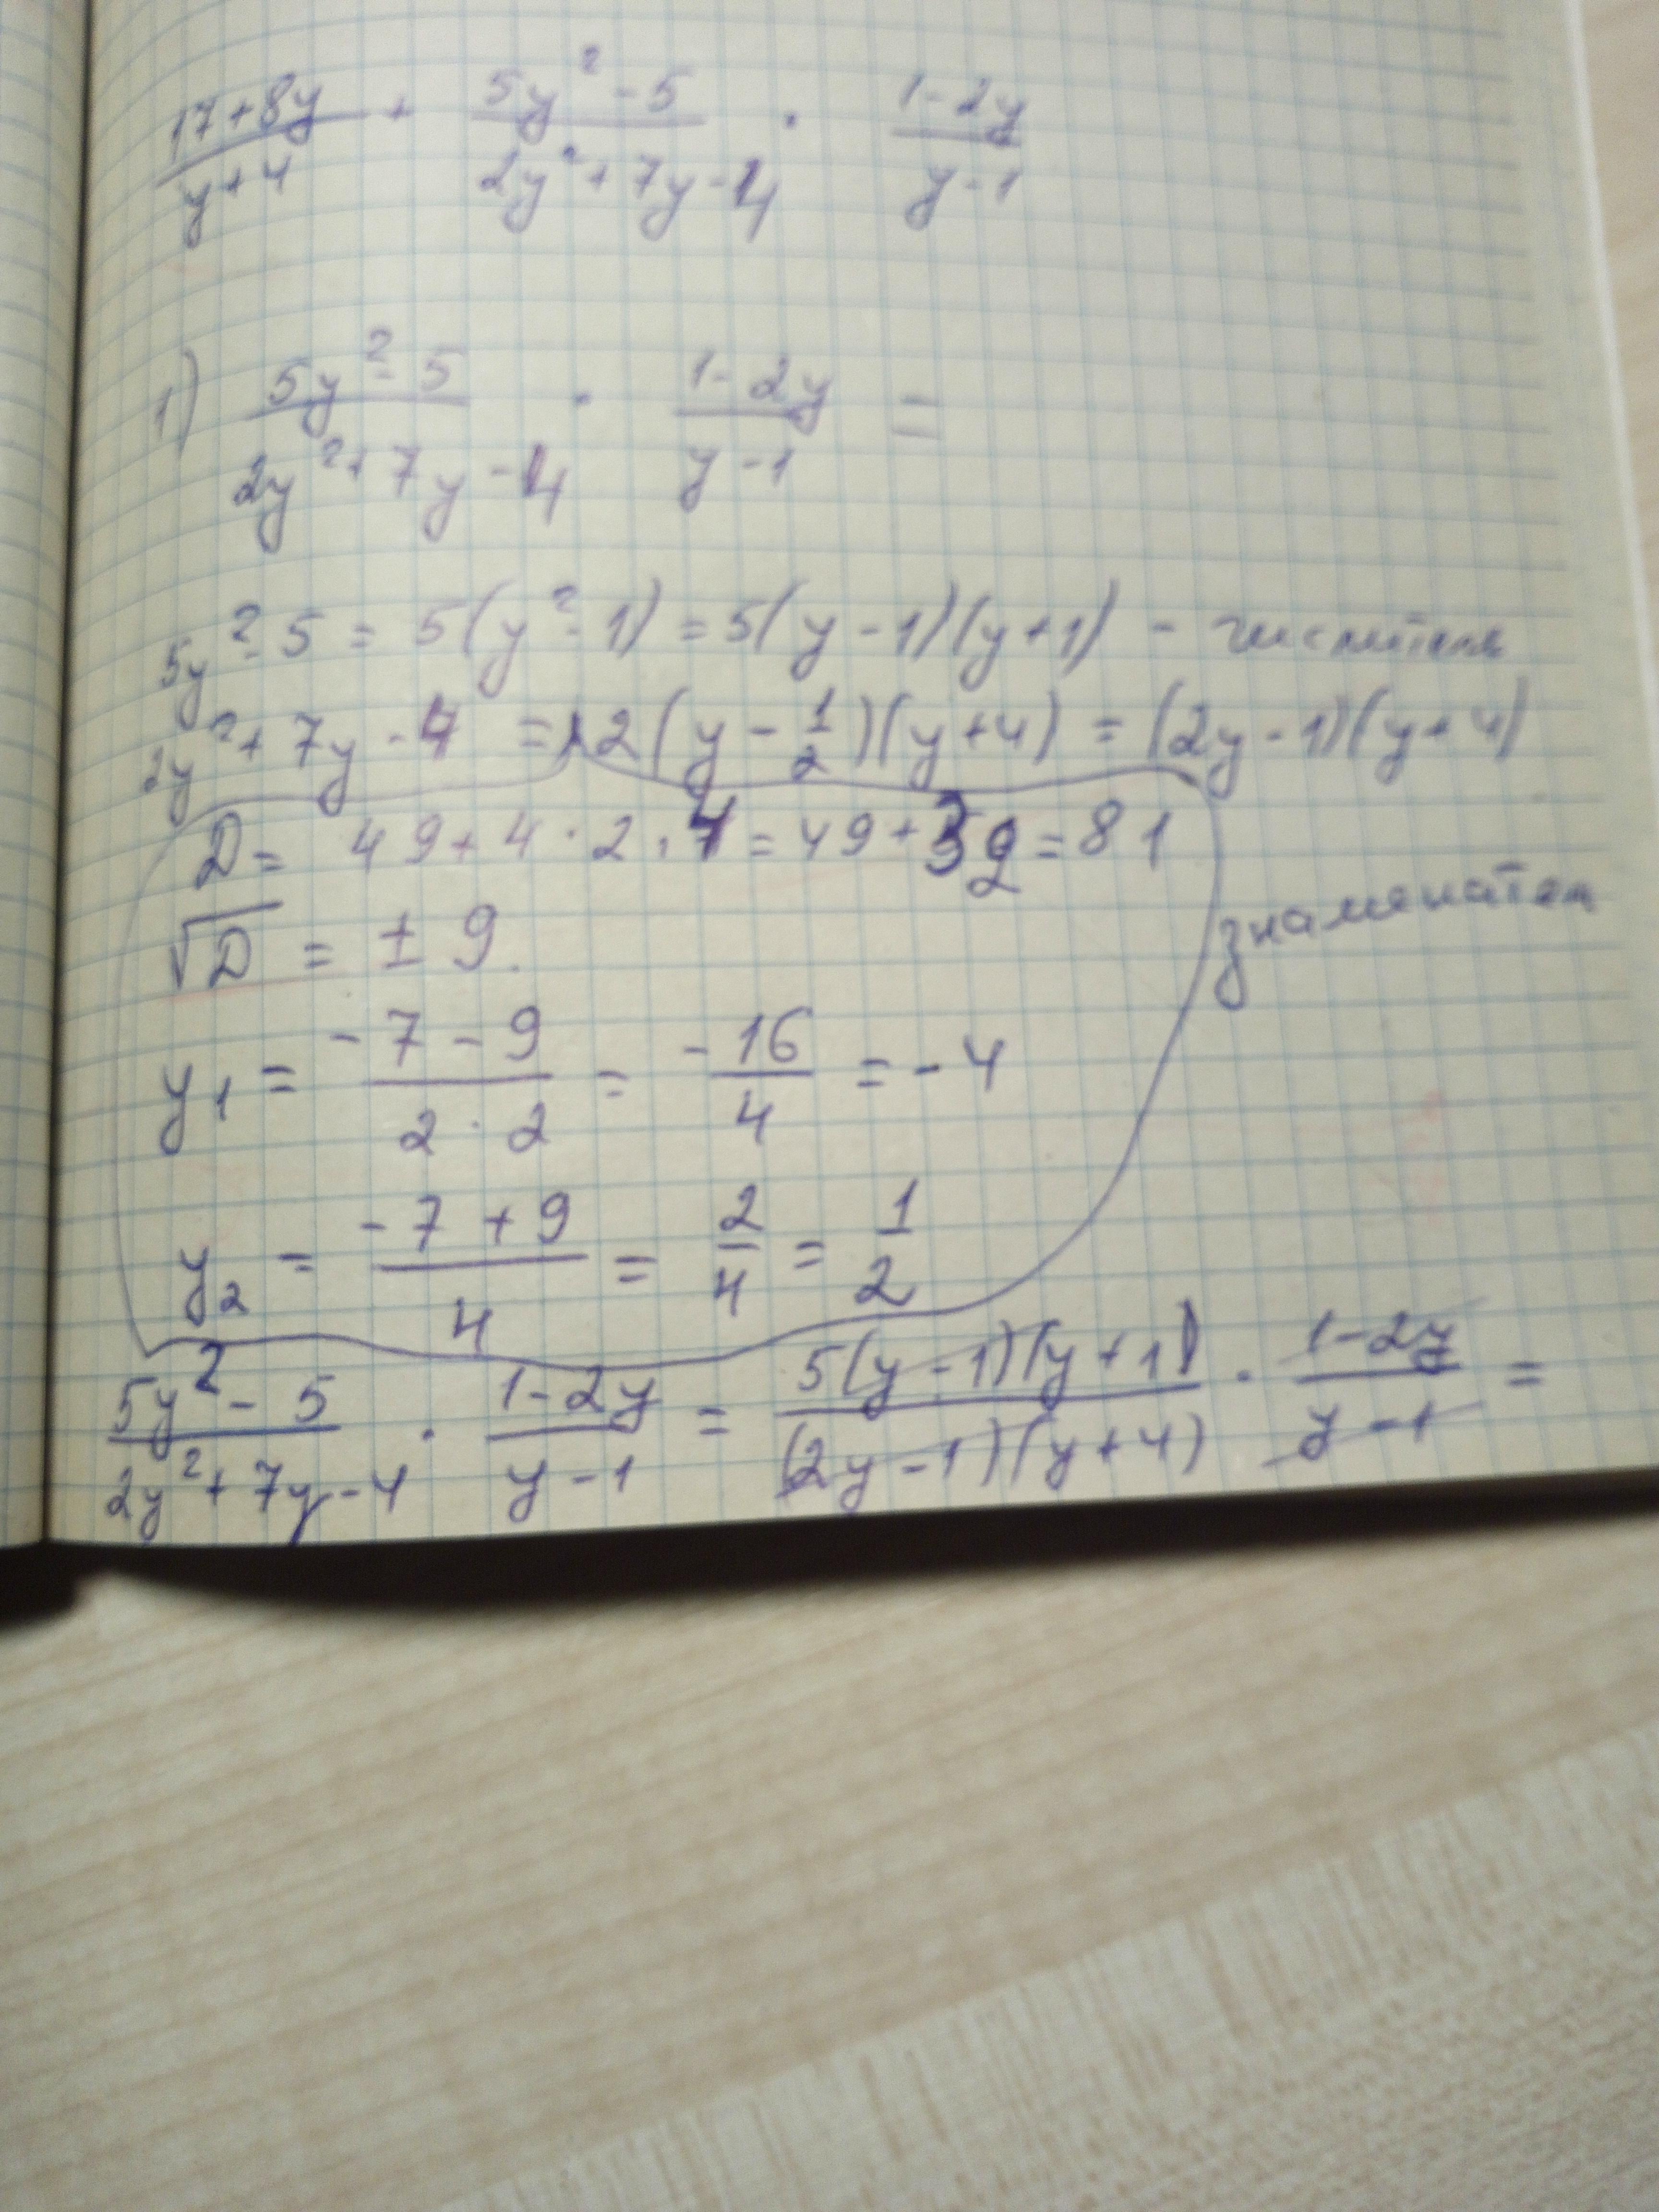 (17+8y)/(y+4) + (5y²-5)/(2y²+7y-4) · (1-2y)/(y-1)
1) (5y²-5)/(2y²+7y-4) · (1-2y)/(y-1) =
5y²-5 = 5(y²-1) = 5(y-1)(y+1) - числитель
2y²+7y-4 = 2(y-1/2)(y+4) = (2y-1)(y+4)
D = 49+4·2·4 = 49+32 = 81
знаменател
√D = ± 9.
y₁ = (-7-9)/(2·2) = -16/4 = -4
y₂ = (-7+9)/4 = 2/4 = 1/2
(5y²-5)/(2y²+7y-4) · (1-2y)/(y-1) = 5(y-1)(y+1)/((2y-1)(y+4)) · (1-2y)/(y-1) =